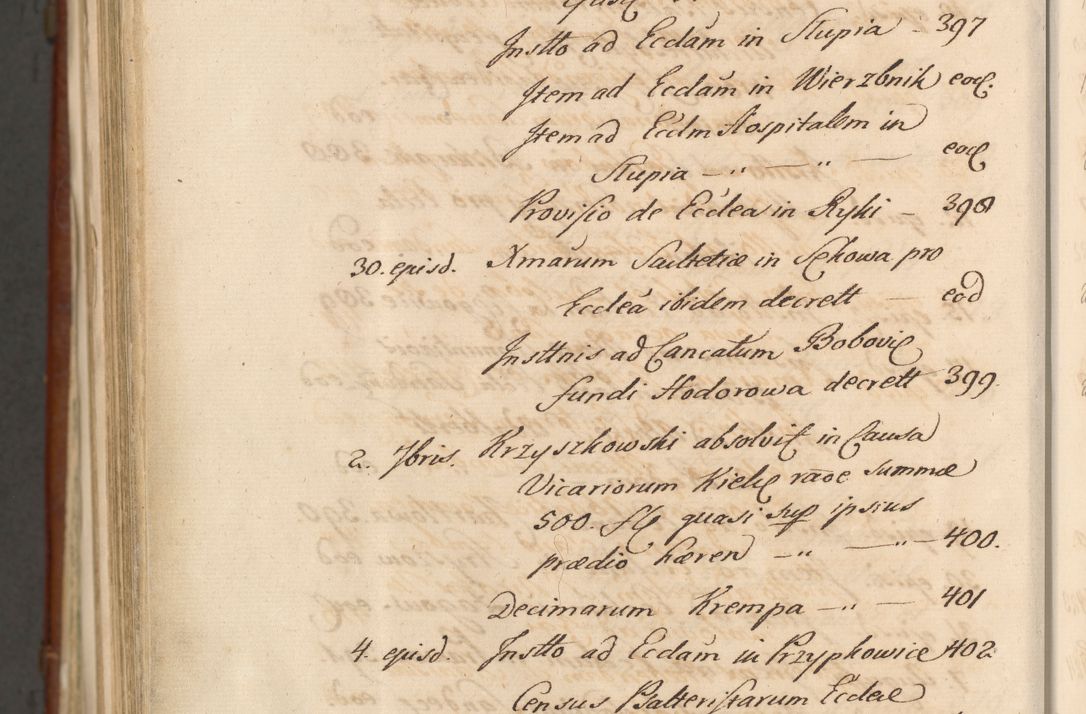 Instto ad Eccłam in Słupia - 397
Item ad Eccłam in Wierzbnik eod.
Item ad Ecclm Hospitalem in
Słupia - " - " - eod
Provisio de Ecclea in Ryki - 398
30. ejusd. Xmarum in Sękowa pro
Ecclea ibidem decrett - eod
Insttnis ad Cancatum Bobovię
fundi Hodorowa decrett 399.
2. 7bris. Krzyszkowski absolvit in Causa
Vicariorum Kielę raoe summæ
500. fl quasi sup ipsius
prædio hæren - " - " - 400.
Decimarum Krempa - " - 401
4. ejusd. Instto ad Eccłam in Przypkowice 402
Census Psalteristarum Ecclae